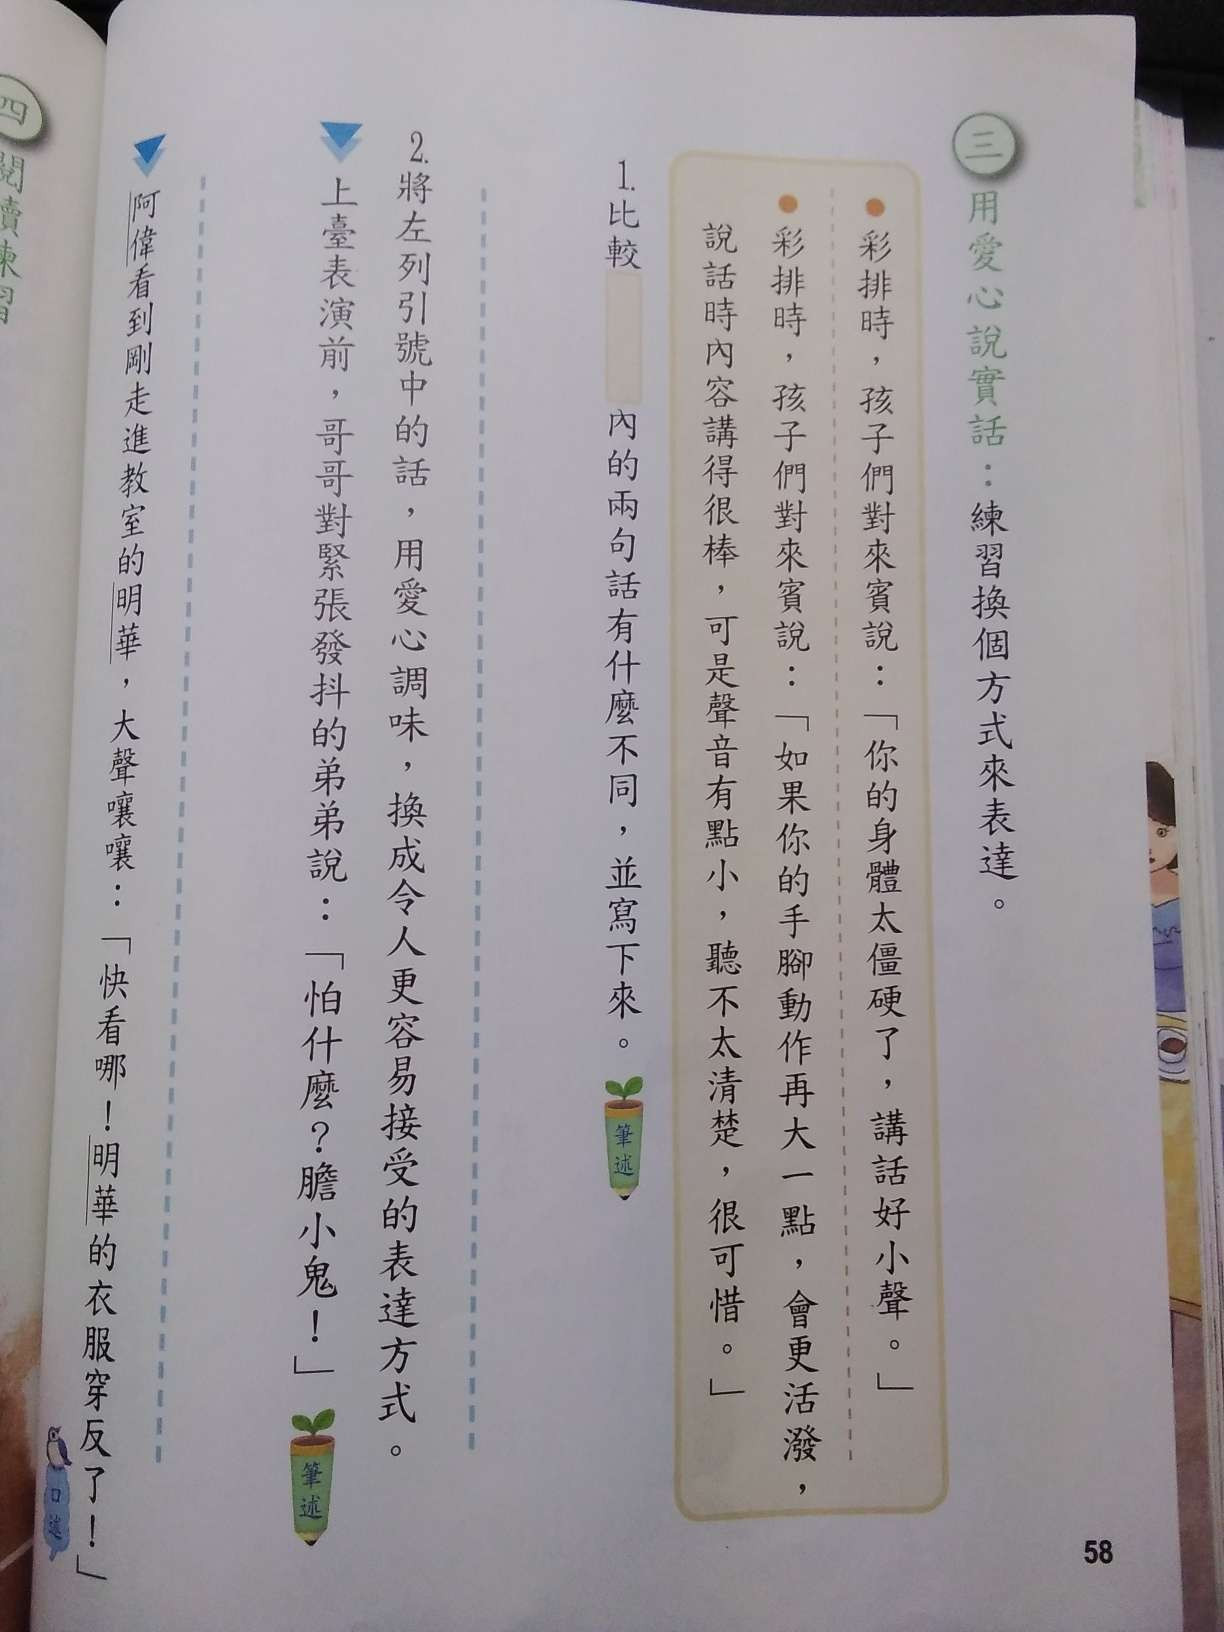 三 用愛心說實話：練習換個方式來表達。
彩排時，孩子們對來賓說：「你的身體太僵硬了，講話好小聲。」
彩排時，孩子們對來賓說：「如果你的手腳動作再大一點，會更活潑，
說話時內容講得很棒，可是聲音有點小，聽不太清楚，很可惜。」
1.比較 內的兩句話有什麼不同，並寫下來。 筆述
2.將左列引號中的話，用愛心調味，換成令人更容易接受的表達方式。
上臺表演前，哥哥對緊張發抖的弟弟說：「怕什麼？膽小鬼！」 筆述
阿偉看到剛走進教室的明華，大聲嚷嚷：「快看哪！明華的衣服穿反了！」 口述
58
四 閱讀練習